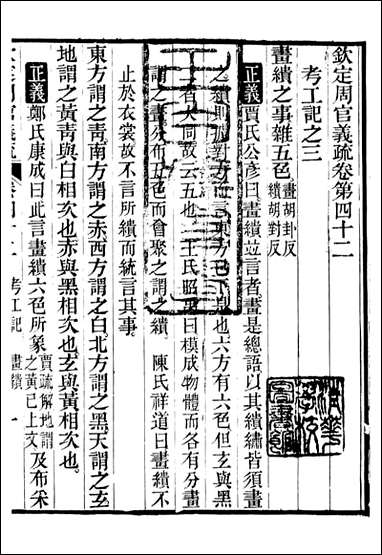 欽定周官義疏卷第四十二
考工記之三
畫繢之事雜五色畫胡卦反繢胡對反
正義賈氏公彥曰畫繢竝言者畫是總語以其繢繡皆須畫
之 言東方已下是也六方有六色但玄與黑
二者大同故云五也 王氏昭禹曰模成物體而各有分畫
謂之畫分布五色而會聚之謂之繢 陳氏祥道曰畫繢不
止於衣裳故不言所繢而統言其事
東方謂之青南方謂之赤西方謂之白北方謂之黑天謂之玄
地謂之黃青與白相次也赤與黑相次也玄與黃相次也
正義鄭氏康成曰此言畫繢六色所象賈疏解地謂之黃已上文及布采
考工記 畫繢 一